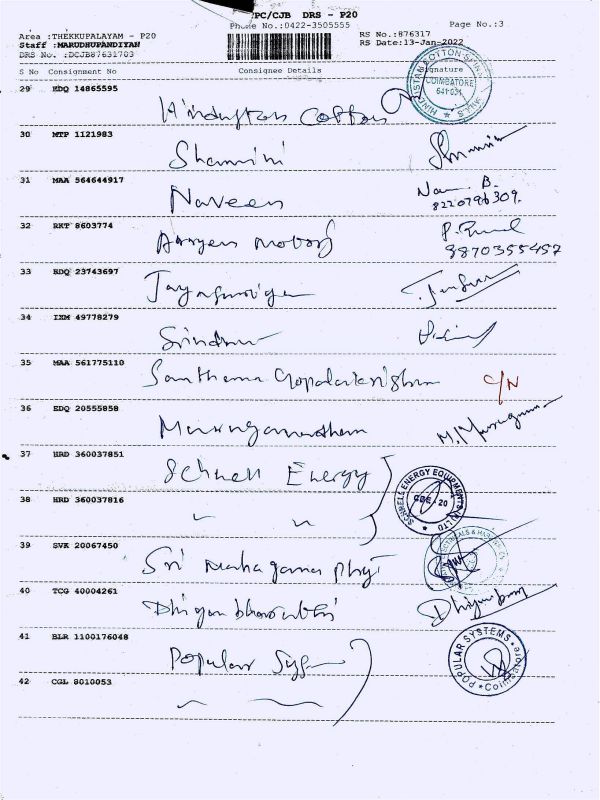 TPC/CJB DRS - P20
Phone No.:0422-3505555
Page No.:3
Area :THEKKUPALAYAM - P20
RS No.:876317
Staff :MARUDHUPANDIYAN
RS Date:13-Jan-2022
DRS No. :DCJB87631703
S No Consignment No Consignee Details Signature
29 EDQ 14865595
Hindustan Cotton
COIMBATORE
641031
30 MTP 1121983
Shamini
31 MAA 564644917
Naveen
B.
8220796309.
32 RKT 8603774
Motors
8870355457
33 EDQ 23743697
34 IXM 49778279
35 MAA 561775110
Santhana Gopalakrishnan C/N
36 EDQ 20555858
M. Murugan
37 HRD 360037851
Schnell Energy
SCHNELL ENERGY EQUIPMENTS (P) LTD
CBE - 20
38 HRD 360037816
〃 〃
39 SVK 20067450
Sri Mahaganapathy
40 TCG 40004261
41 BLR 1100176048
Popular System
POPULAR SYSTEMS
Coimbatore
42 CGL 8010053